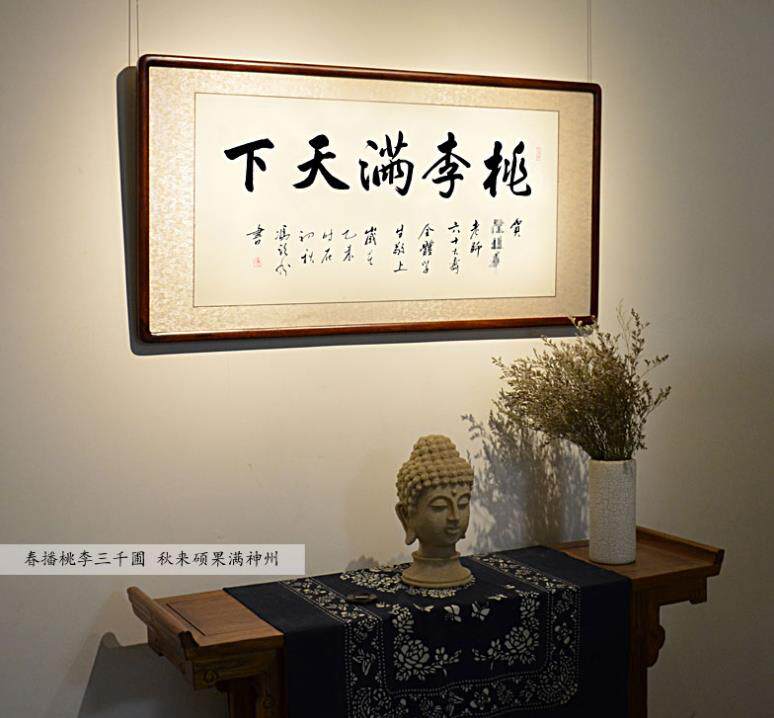 桃李满天下
賀
老師
六十大壽
全體學
生敬上
歲在
乙未
时在
初秋
書
春播桃李三千圃 秋来硕果满神州